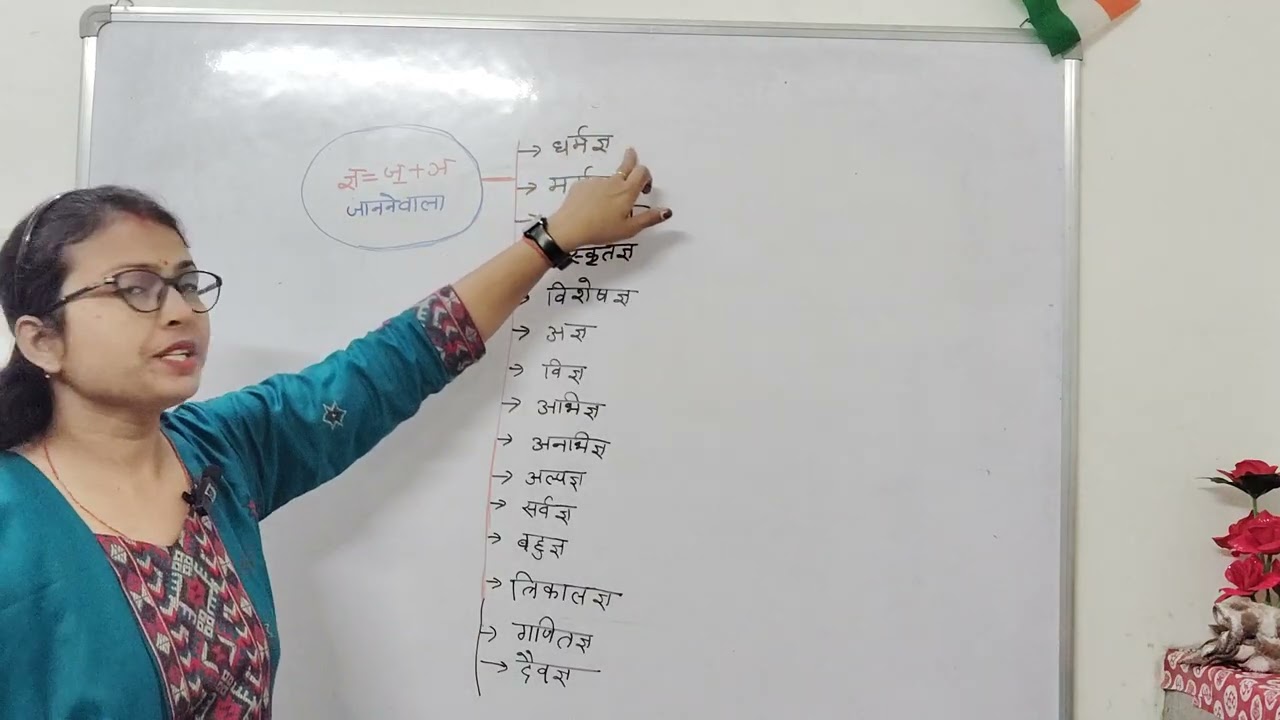 ज्ञ = ज् + ञ
जाननेवाला
→ धर्मज्ञ
→
→
स्कृतज्ञ
→ विशेषज्ञ
→ अज्ञ
→ विज्ञ
→ अभिज्ञ
→ अनभिज्ञ
→ अल्पज्ञ
→ सर्वज्ञ
→ बहुज्ञ
→ त्रिकालज्ञ
→ गणितज्ञ
→ दैवज्ञ